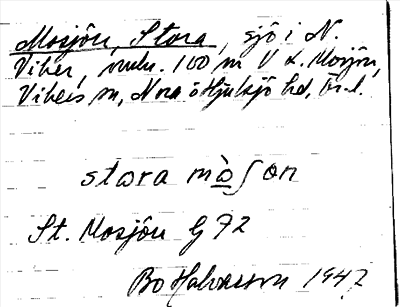 Mosjön, Stora, sjö i N.
Viker, 100 m V L. Mosjön,
Vikers sn, Nora o Hjulsjö hd, Ör. l.
stora mò̱ʃon
St. Mosjön G 92
Bo Halvarsson 1947